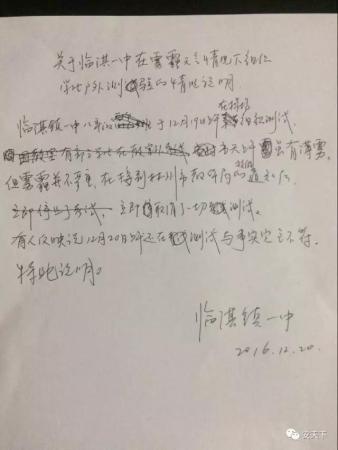 关于临淇一中在雾霾天气情况下组织
学生户外测验的情况说明
临淇镇一中八年级于12月19日在操场组织测试
当天虽有薄雾
但雾霾并不严重，在接到林州市教体局的通知后
立即停止了考试，立即取消了一切测试。
有人反映说12月20日还在测试与事实完全不符。
特此说明。
临淇镇一中
2016.12.20.
安天下